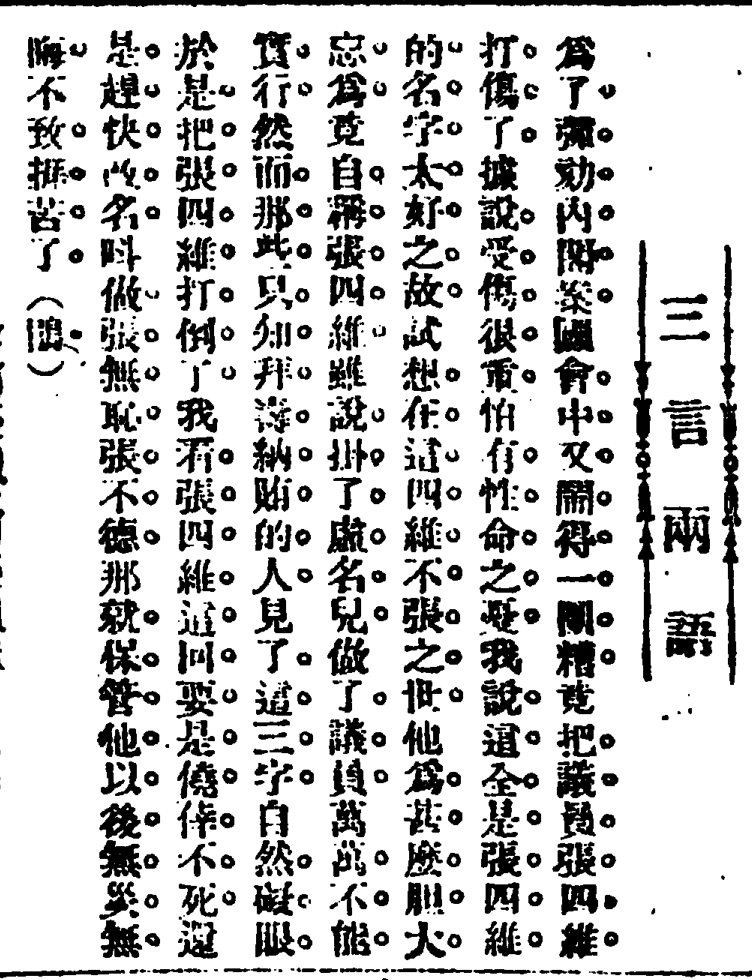 三言兩語
爲了彈劾內閣案國會中又鬧得一團糟竟把議員張四維
打傷了據說受傷很重怕有性命之憂我說這全是張四維
的名字太好之故試想在這四維不張之世他爲甚麽胆大
忘爲竟自稱張四維雖說掛了虛名兒做了議員萬萬不能
實行然而那些只知拜壽納賄的人見了這三字自然礙眼
於是把張四維打倒了我看張四維這回要是僥倖不死還
是趕快改名呌做張無恥張不德那就保管他以後無災無
不致捱苦了(鵑)